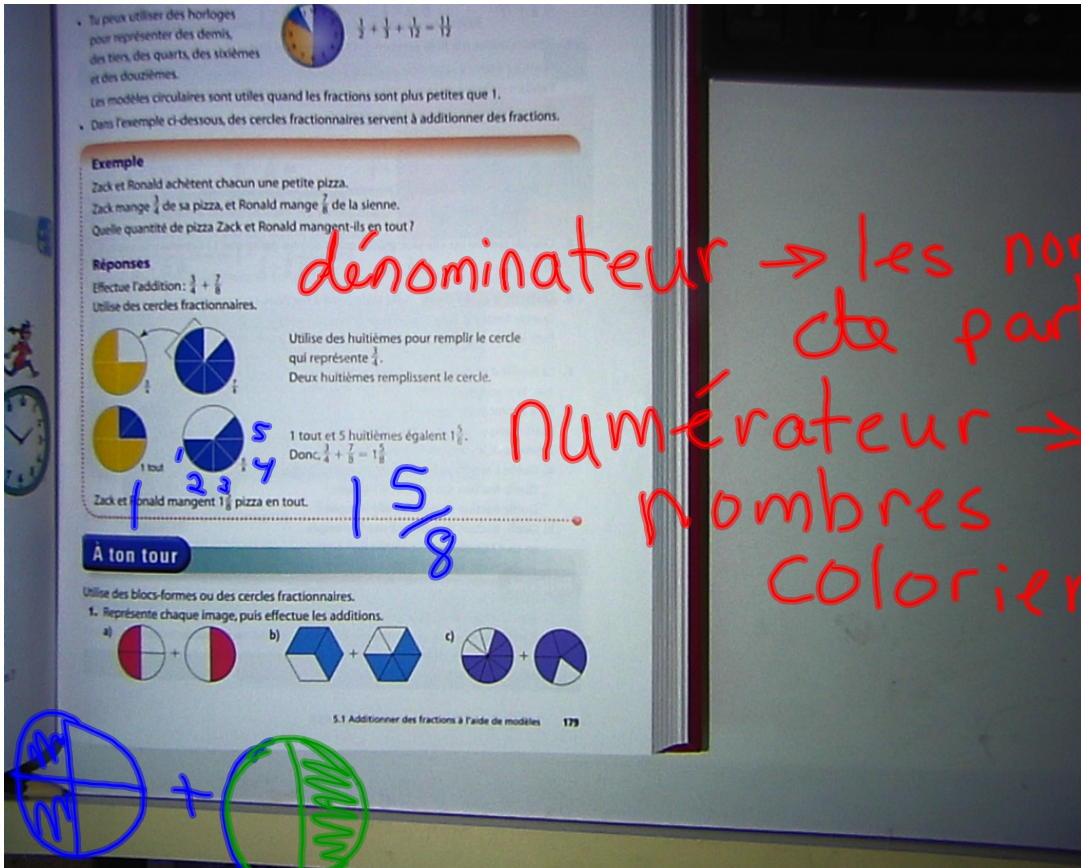 • Tu peux utiliser des horloges
pour représenter des demis,
des tiers, des quarts, des sixièmes
et des douzièmes.
1/2 + 1/3 + 1/12 = 11/12
Les modèles circulaires sont utiles quand les fractions sont plus petites que 1.
• Dans l'exemple ci-dessous, des cercles fractionnaires servent à additionner des fractions.
Exemple
Zack et Ronald achètent chacun une petite pizza.
Zack mange 3/4 de sa pizza, et Ronald mange 7/8 de la sienne.
Quelle quantité de pizza Zack et Ronald mangent-ils en tout ?
Réponses
Effectue l'addition : 3/4 + 7/8
Utilise des cercles fractionnaires.
3/4
7/8
Utilise des huitièmes pour remplir le cercle
qui représente 3/4.
Deux huitièmes remplissent le cercle.
1 tout
5/8
1 tout et 5 huitièmes égalent 1 5/8.
Donc, 3/4 + 7/8 = 1 5/8
Zack et Ronald mangent 1 5/8 pizza en tout.
1
1 2 3 4 5
1 5/8
dénominateur → les
de
numérateur →
nombres
colorier
À ton tour
Utilise des blocs-formes ou des cercles fractionnaires.
1. Représente chaque image, puis effectue les additions.
a) +
b) +
c) +
5.1 Additionner des fractions à l'aide de modèles 179
+